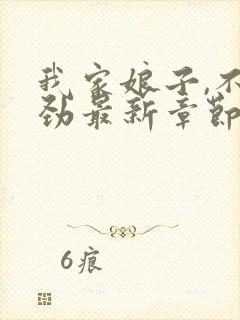 我家娘子,不
劲最新章节
6痕